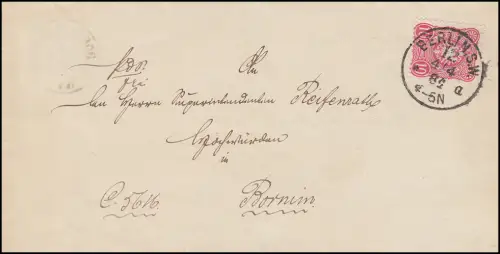 BERLIN, S.W.
12
4/4
82
a
4-5N
10
An
frei
den Herrn Superintendenten Reifenrath
Hochwürden
in
C. 5616. Bornim.